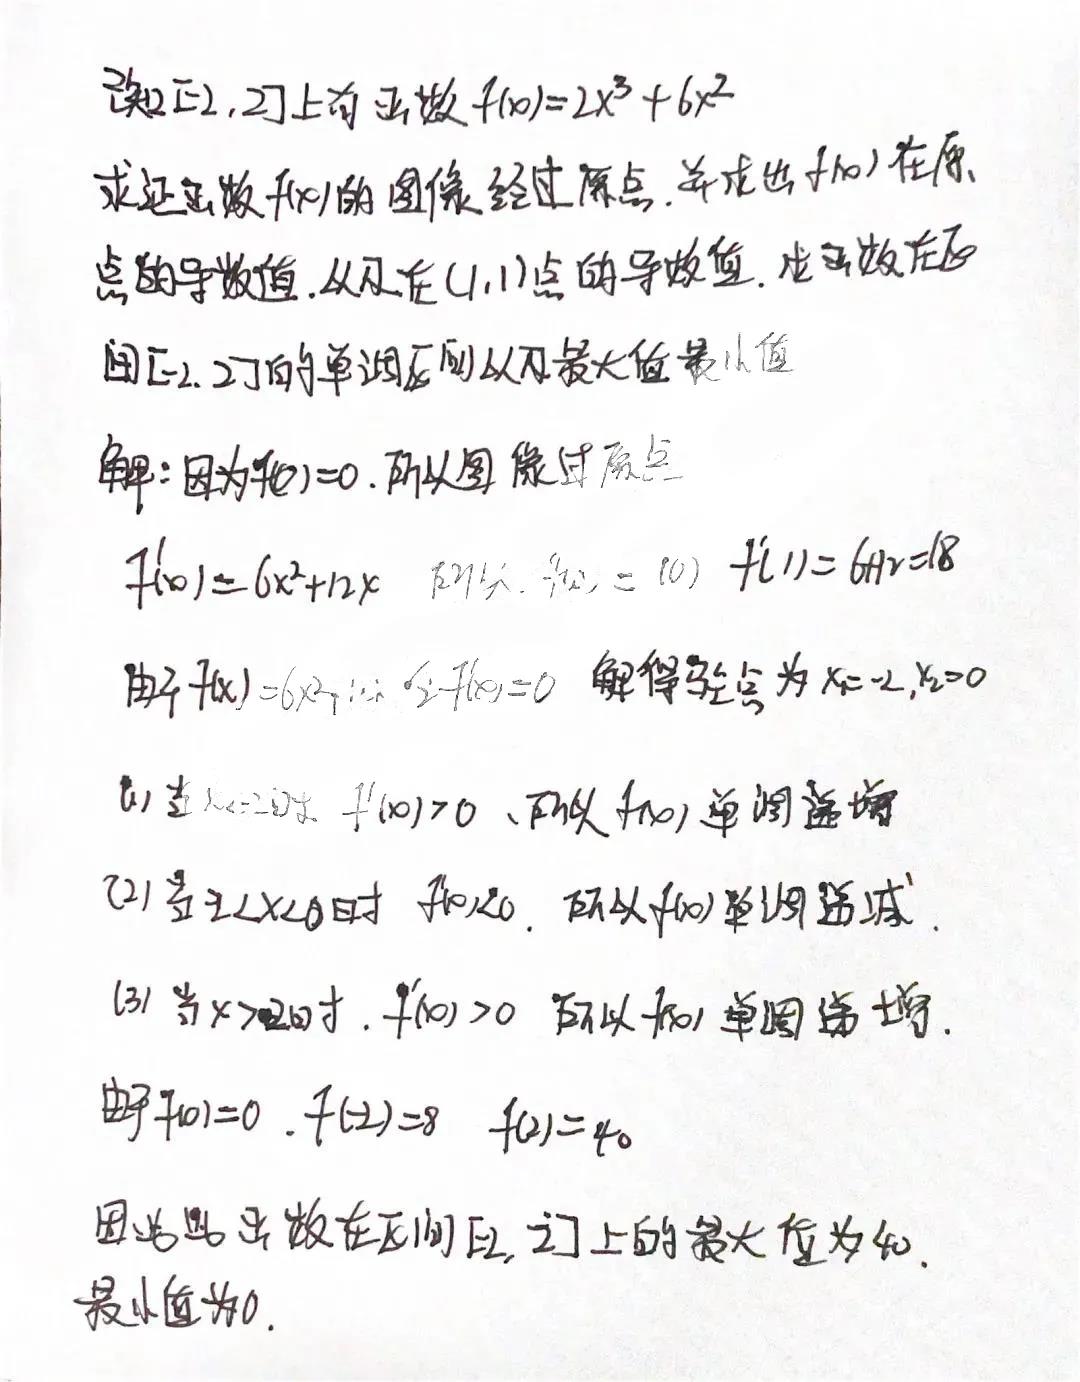 已知[-2,2]上有函数f(x)=2x³+6x²
求证函数f(x)的图像经过原点.并求出f(x)在原
点的导数值.以及在(1,1)点的导数值.求函数在区
间[-2.2]的单调区间以及最大值最小值
解:因为f(0)=0.所以图像过原点
f'(x)=6x²+12x 所以. =(0) f'(1)=6+12=18
由于f(x)=6x²+ 令f(x)=0 解得驻点为x₁=-2,x₂=0
(1)当x<-2时 f'(x)>0、所以f(x)单调递增
(2)当-2<x<0时 f'(x)<0.所以f(x)单调递减.
(3)当x> 时.f'(x)>0 所以f(x)单调递增.
由于f(0)=0.f(-2)=8 f(2)=40
因此 函数在区间[-2,2]上的最大值为40.
最小值为0.